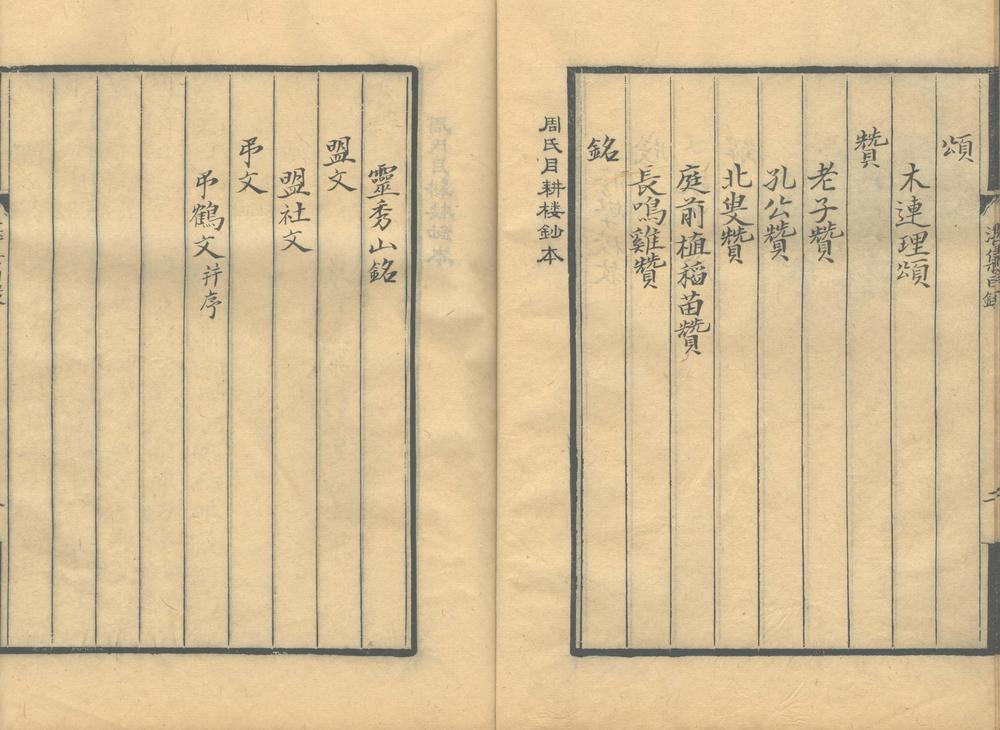 頌
木連理頌
贊
老子贊
孔公贊
北叟贊
庭前植稻苗贊
長鳴雞贊
銘
周氏目耕樓鈔本
靈秀山銘
盟文
盟社文
弔文
弔鶴文并序